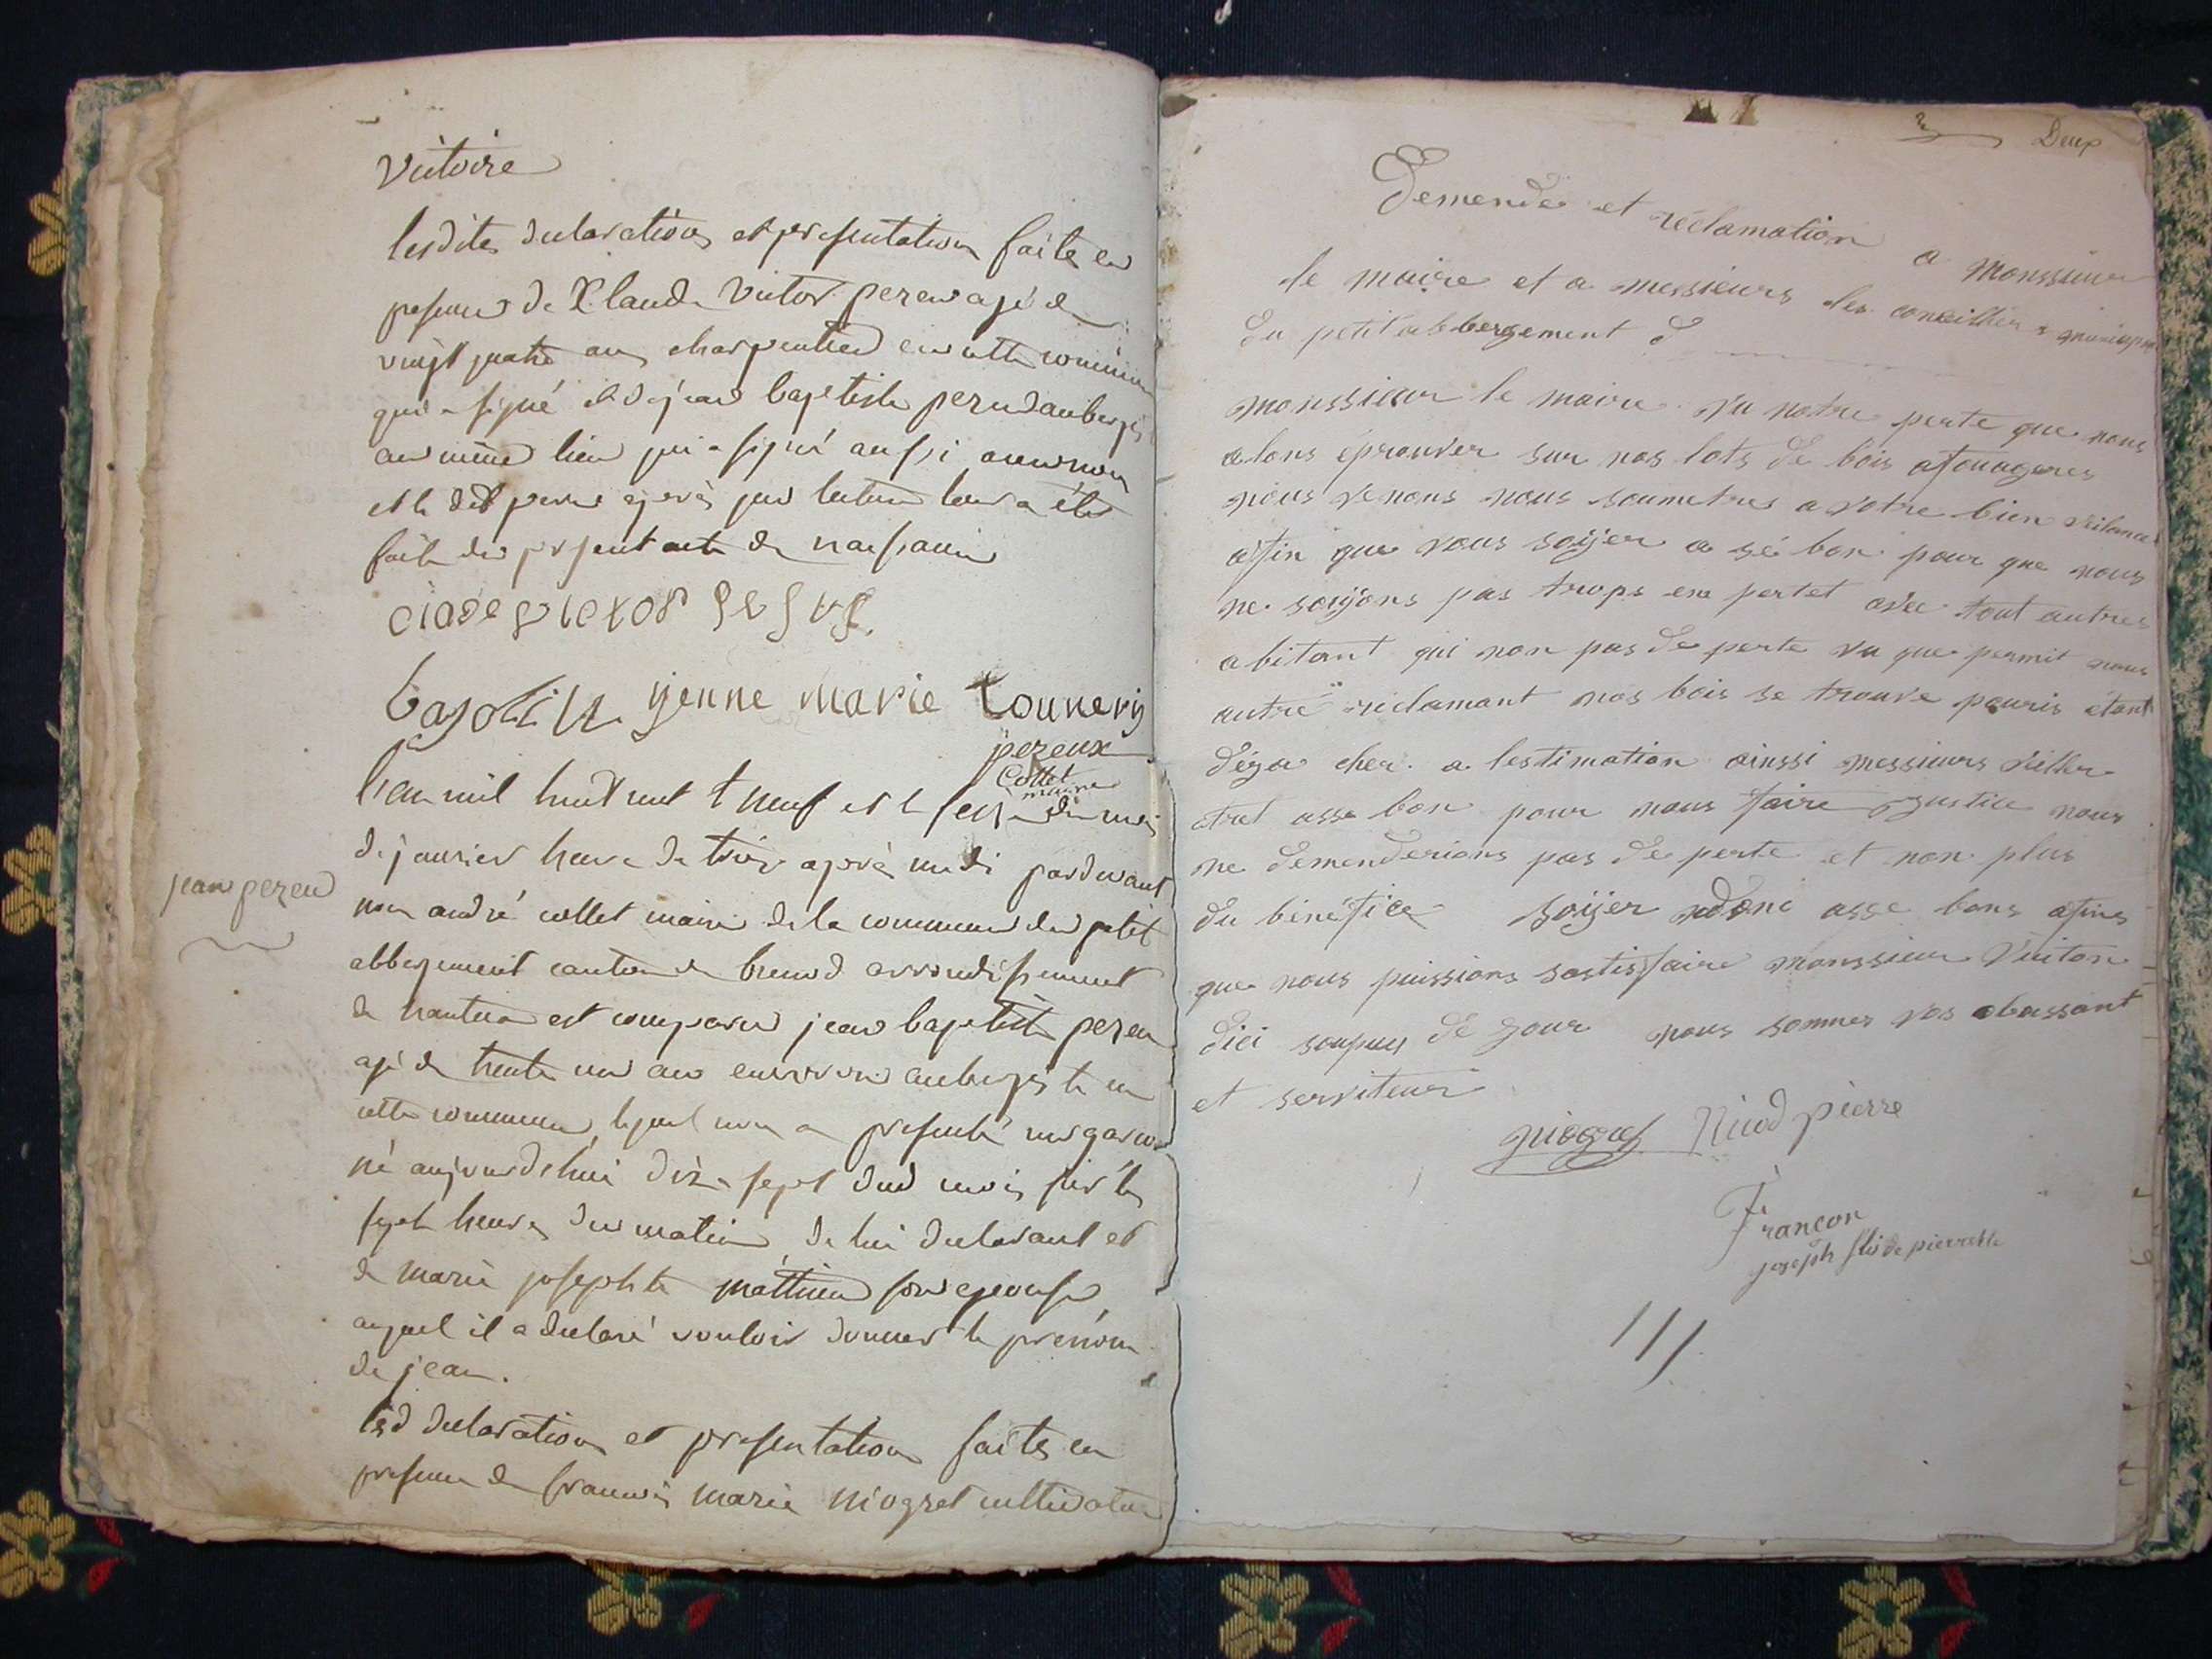 Victoire
lesdites declarations et presentation faite en
presence de Claude Victor pereu agé de
vingt quatre ans charpentier en cette commune
qui a signé et de jean baptiste pereu aubergiste
au même lieu qui a signé aussi
et le dit pereu après que lecture leur a été
faite du present acte de naissance
baptiste yenne marie tounery
pereux
Collet
maire
l'an mil huit cent neuf et le seize du mois
de janvier heure de trois après midi pardevant
jean pereu
nou andré collet maire de la commune du petit
abbergement canton de brenod arrondissement
de nantua est comparu jean baptiste pereu
agé de trente un ans environ aubergiste en
cette commune, lequel nou a presenté un garcon
né aujourdehui dix sept dud mois sur les
sept heures du matin, de lui declarant et
de marie josephte mathieu son epouse
auquel il a declaré vouloir donner le prenom
de jean.
lesd declaration et presentation faites en
presence de francois marie niogret cultivateur
2 Deux
Demende et réclamation a Monssieur
le maire et a messieurs les conseillers municipaux
du petit abbergement d
monssieur le maire vu notre perte que nous
alons éprouver sur nos lots de bois afouageres
nous venons nous soumetres a votre bien veilance
afin que vous soijer a sé bon pour que nous
ne soijons pas trops en pertet avec tout autres
abitant qui non pas de perte vu que permit nous
autre réclamant nos bois se trouve pouris étant
déga cher a lestimation ainssi messieurs veiller
etret asse bon pour nous faire gustice nous
ne demenderions pas de perte et non plus
du bénéfice soijer donc asse bons afins
que nous puissions sastisfaire monssieur Vuiton
dici soupeu de gour nous sommes vos obassant
et serviteur
niogret Nicod pierre
Francon
joseph fils de pierrette